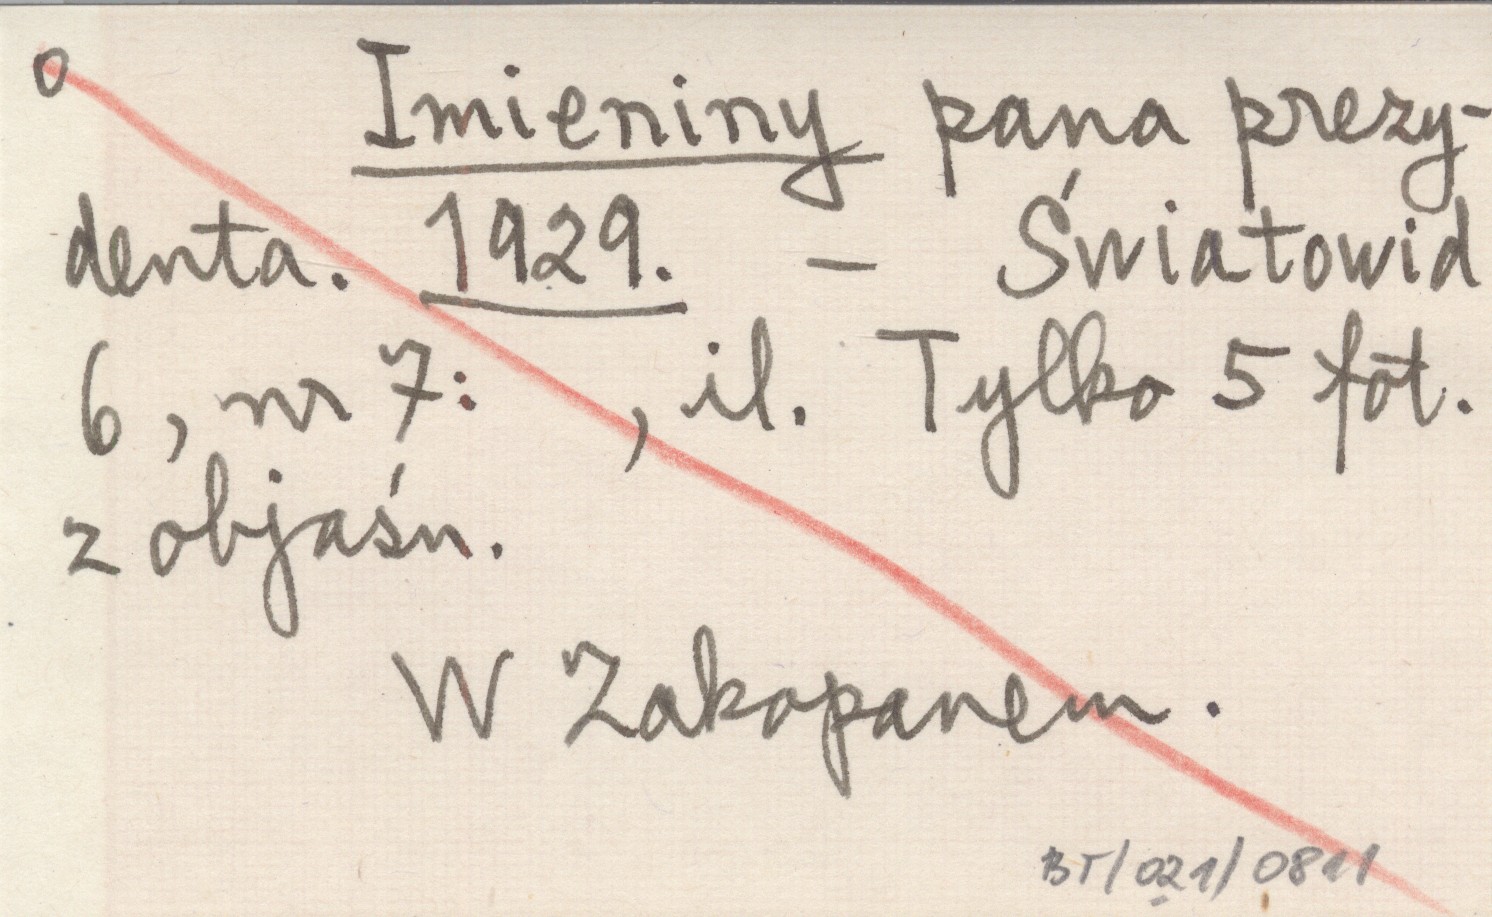 o Imieniny pana prezy-
denta. 1929. – Światowid
6, nr 7: , il. Tylko 5 fot.
z objaśn.
W Zakopanem.
BT/021/0811